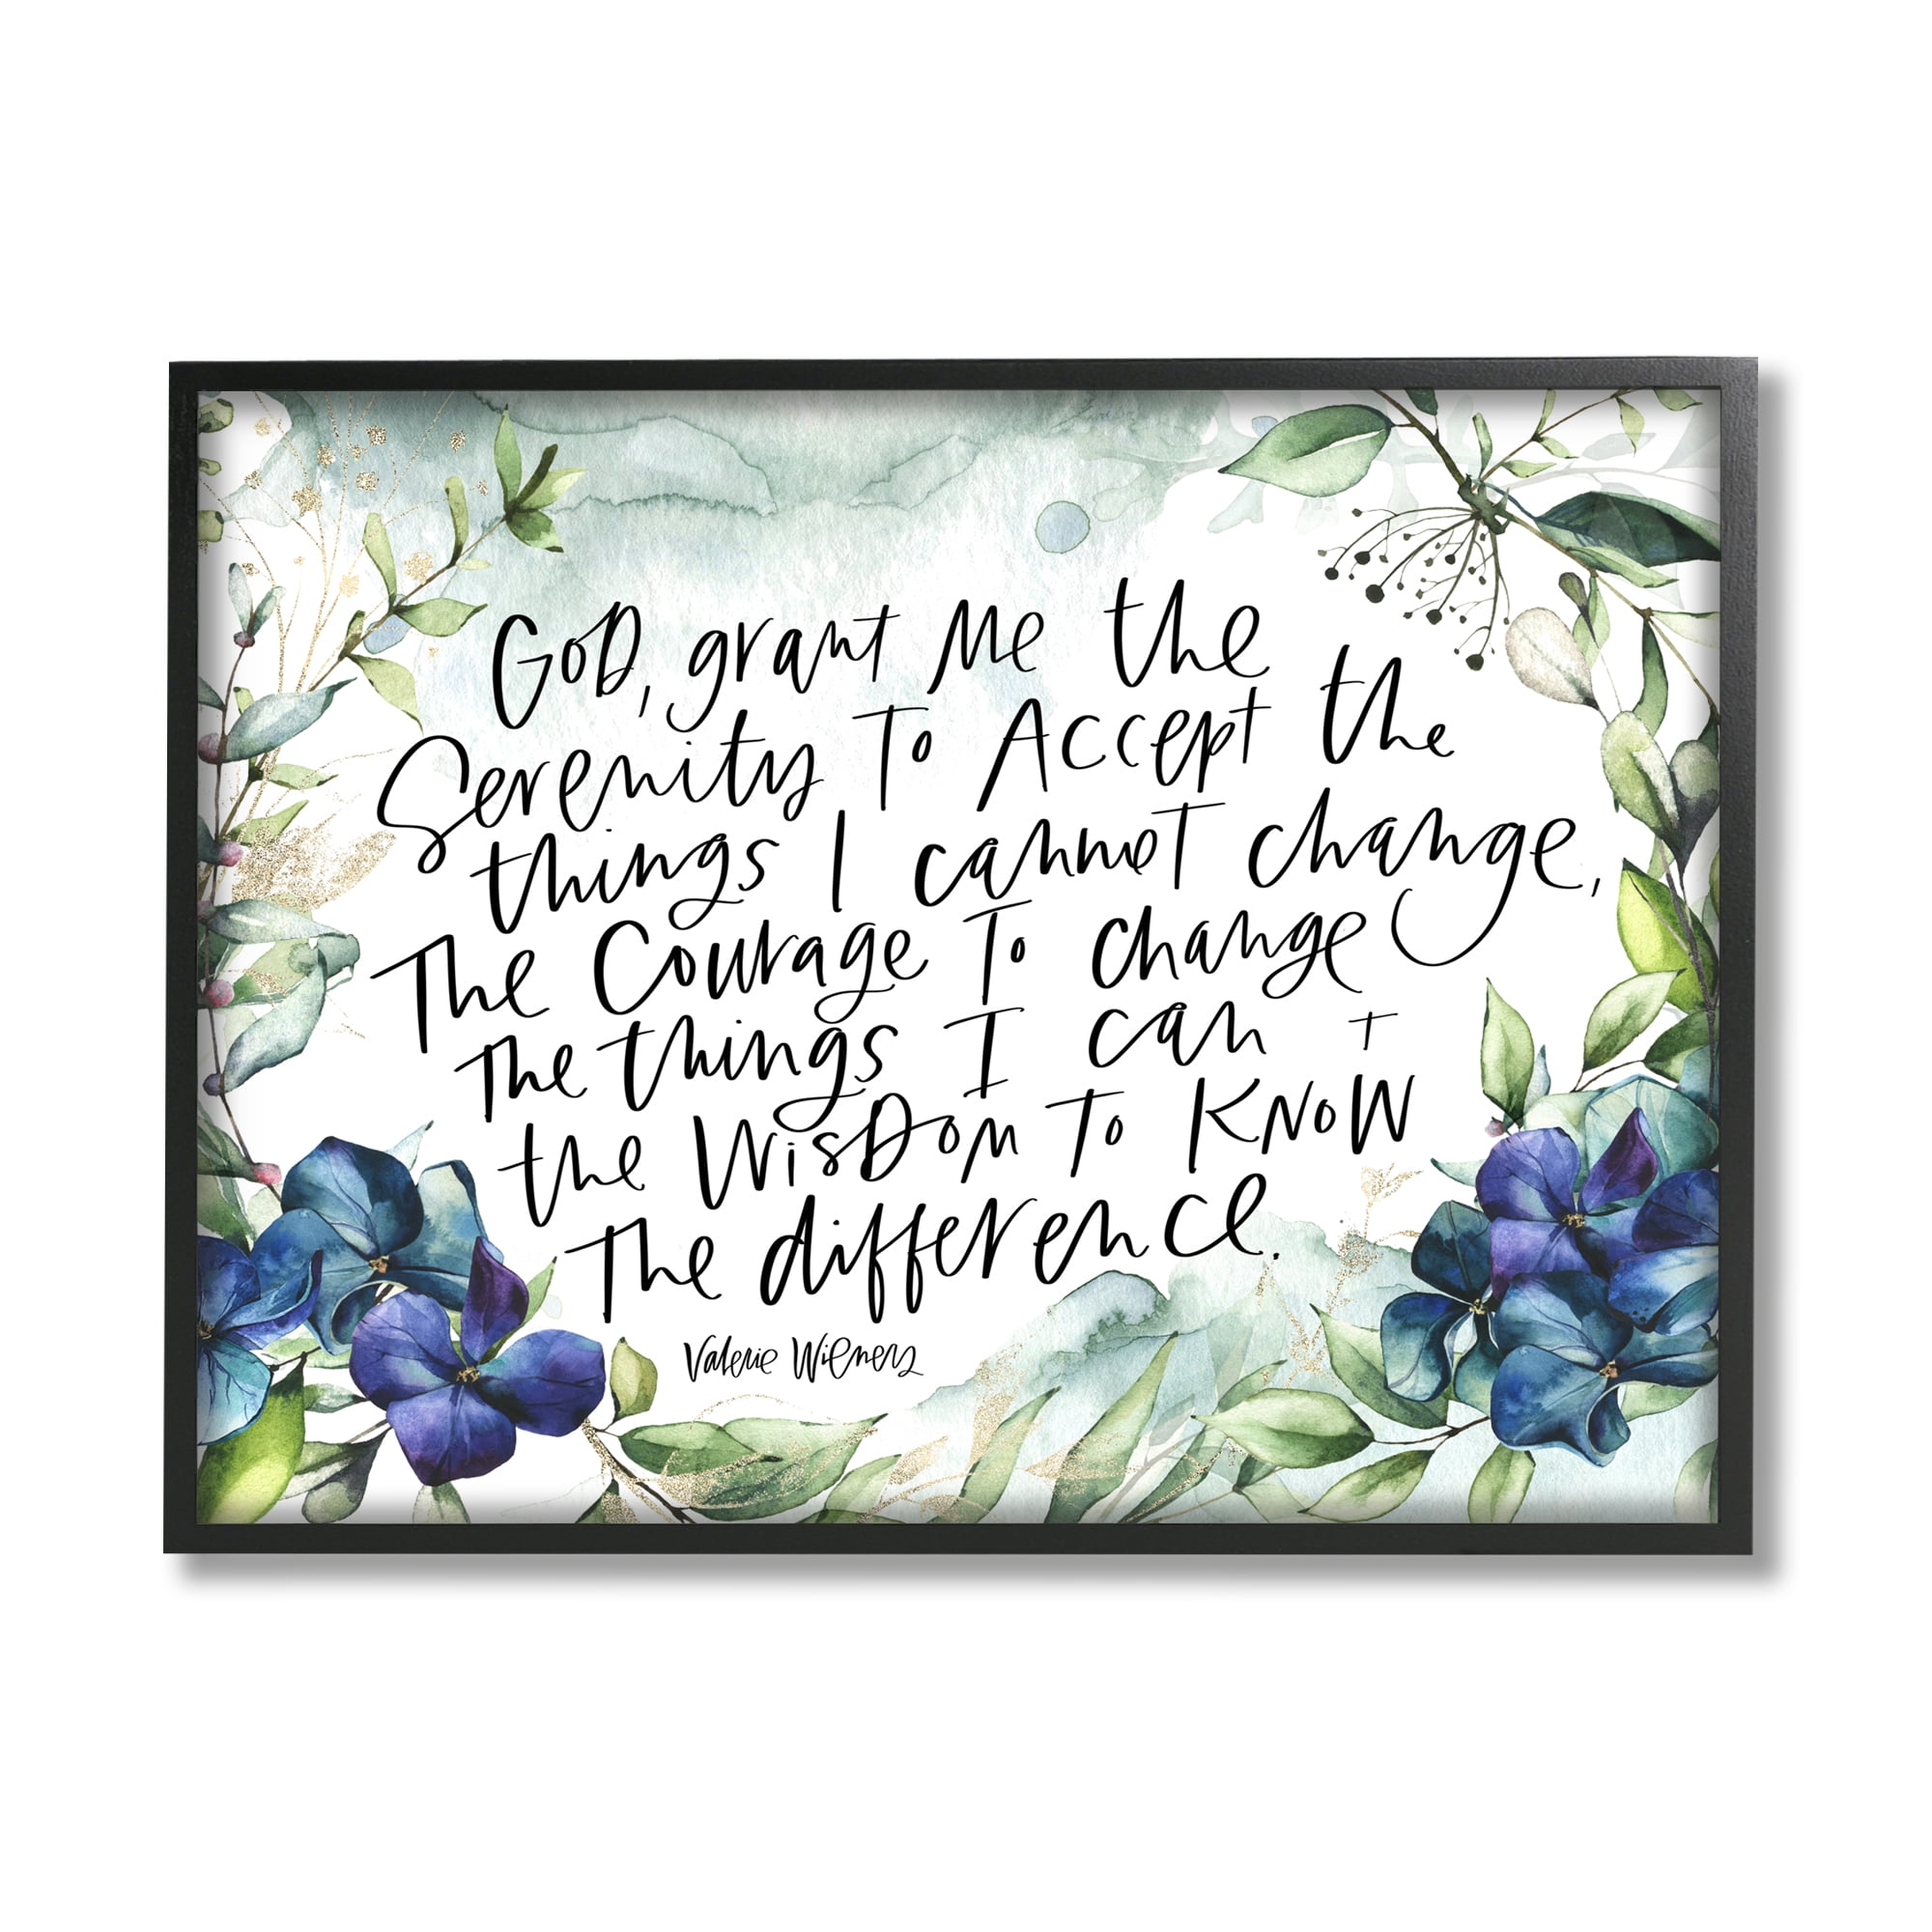 GOD, grant Me the
Serenity To Accept the
things I cannot change,
The Courage To change
The things I can +
the WisDom To KNOW
The difference.
Valerie Wieners